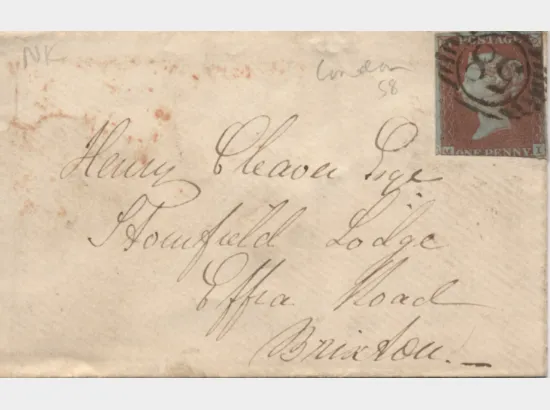 NK
London
58
POSTAGE
58
M ONE PENNY I
Henry Cleaver Esqe
Stomfield Lodge
Effra Road
Brixton.